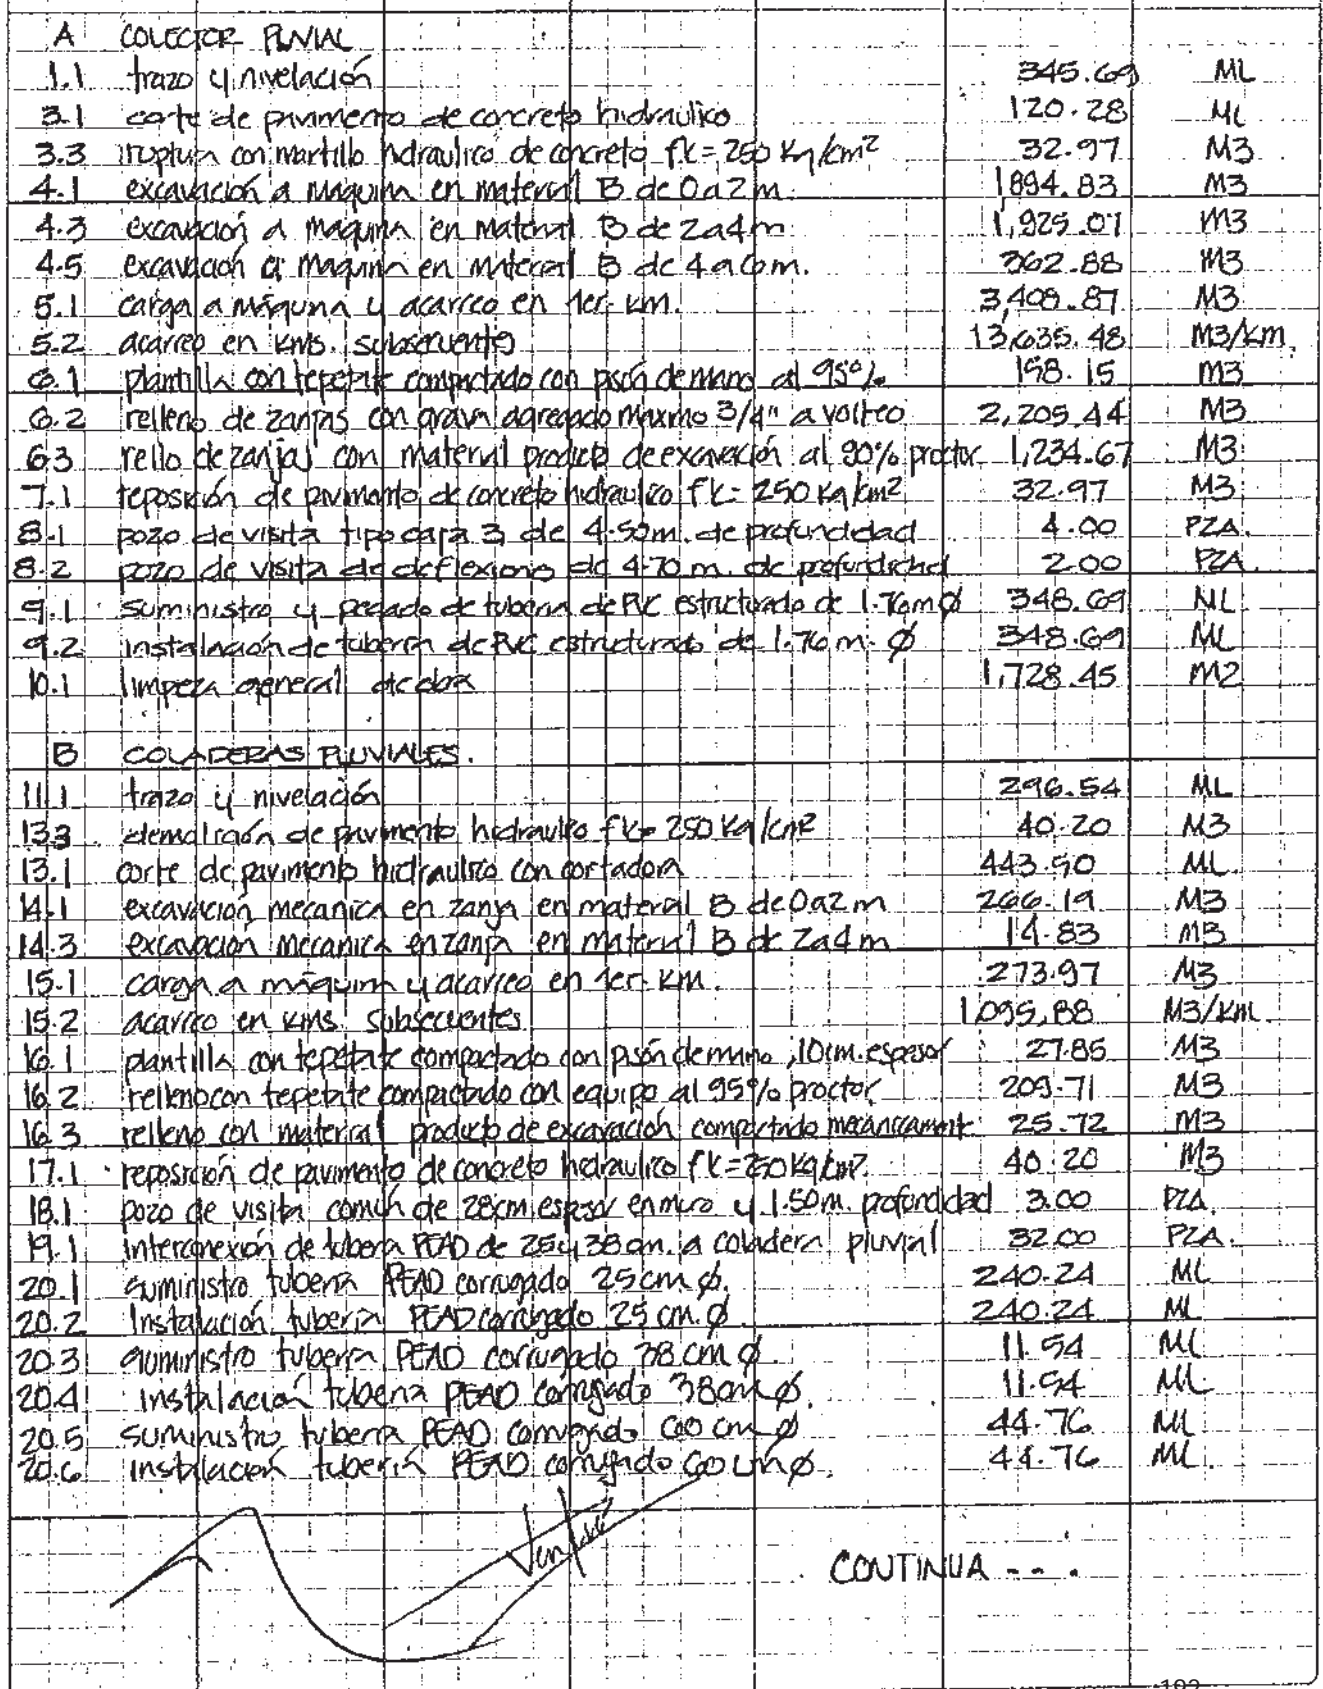 A COLECTOR PLUVIAL
1.1 trazo y nivelación 345.69 ML
3.1 corte de pavimento de concreto hidraulico 120.28 ML
3.3 ruptura con martillo hidraulico de concreto f'c=250 Kg/cm² 32.97 M3
4.1 excavación a maquina en material B de 0 a 2 m. 1894.83 M3
4.3 excavación a maquina en material B de 2 a 4 m 1,925.07 M3
4.5 excavación a maquina en material B de 4 a 6 m. 362.88 M3
5.1 carga a máquina y acarreo en 1er. km. 3,408.87 M3
5.2 acarreo en kms. subsecuentes 13,635.48 M3/km.
6.1 plantilla con tepetate compactado con pisón de mano al 95% 158.15 M3
6.2 relleno de zanjas con grava agregado maximo 3/4" a volteo 2,205.44 M3
6.3 rello de zanjas con material producto de excavación al 90% proctor 1,234.67 M3
7.1 reposición de pavimento de concreto hidraulico f'c= 250 Kg/cm² 32.97 M3
8.1 pozo de visita tipo caja 3 de 4.50 m. de profundidad 4.00 PZA.
8.2 pozo de visita de deflexiono de 4.70 m. de profundidad 2.00 PZA.
9.1 suministro y pegado de tuberia de PVC estructurado de 1.76 m Ø 348.69 ML
9.2 instalación de tuberia de PVC estructurado de 1.76 m. Ø 348.69 ML
10.1 limpeza general de obra 1,728.45 M2
B COLADERAS PLUVIALES.
11.1 trazo y nivelación 296.54 ML
13.3 demolición de pavimento hidraulico f'c= 250 Kg/cm² 40.20 M3
13.1 corte de pavimento hidraulico con cortadora 443.90 ML.
14.1 excavación mecanica en zanja en material B de 0 a 2 m 266.19 M3
14.3 excavación mecanica en zanja en material B de 2 a 4 m 14.83 M3
15.1 carga a máquina y acarreo en 1er. km. 273.97 M3
15.2 acarreo en kms. subsecuentes 1095.88 M3/km.
16.1 plantilla con tepetate compactado con pisón de mano, 10 cm. espesor 27.85 M3
16.2 relleno con tepetate compactado con equipo al 95% proctor. 209.71 M3
16.3 relleno con material producto de excavación compactado mecanicamente 25.72 M3
17.1 reposición de pavimento de concreto hidraulico f'c=250 Kg/cm². 40.20 M3
18.1 pozo de visita común de 28 cm espesor en muro y 1.50 m. profundidad 3.00 PZA.
19.1 interconexión de tuberia PEAD de 25 y 38 cm. a coladera pluvial 32.00 PZA.
20.1 suministro tuberia PEAD corrugado 25 cm Ø. 240.24 ML
20.2 Instalación tuberia PEAD corrugado 25 cm. Ø. 240.24 ML
20.3 suministro tuberia PEAD corrugado 38 cm Ø. 11.54 ML
20.4 instalación tuberia PEAD corrugado 38 cm Ø. 11.54 ML
20.5 suministro tuberia PEAD corrugado 60 cm Ø 44.76 ML
20.6 instalación tuberia PEAD corrugado 60 cm Ø. 44.76 ML
CONTINUA - - .